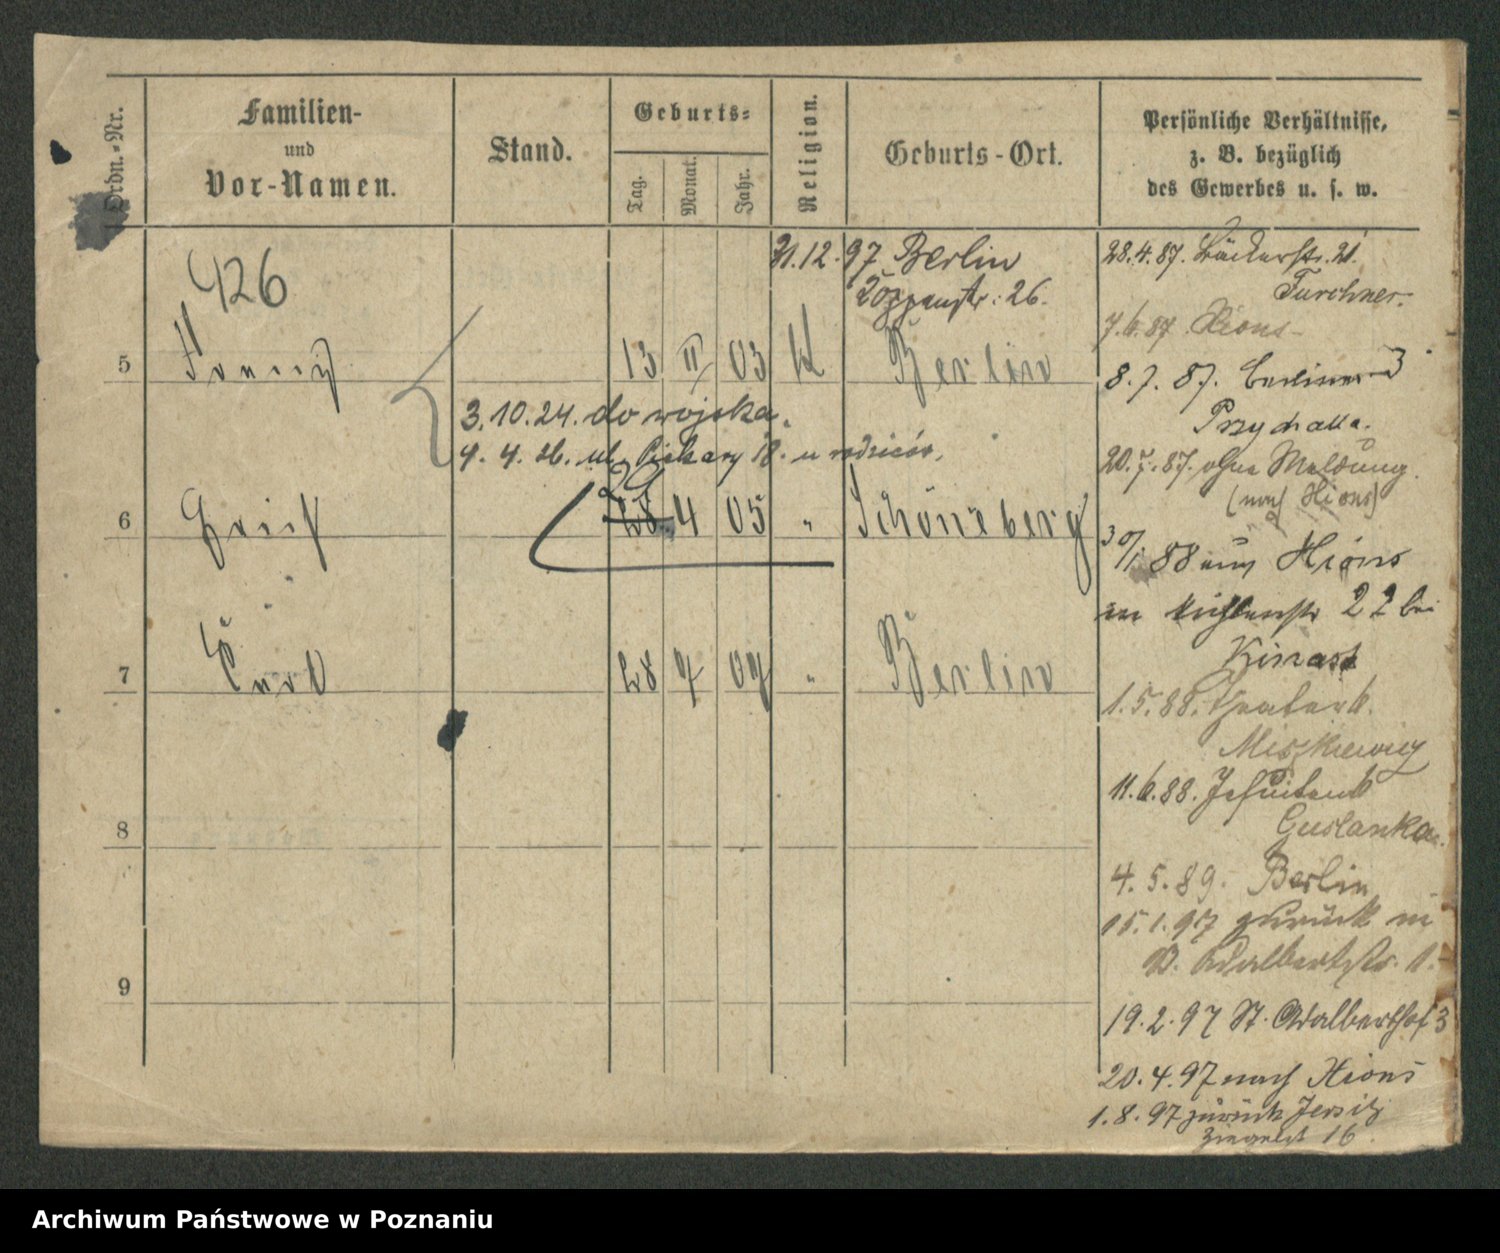 Ordn.-Nr.
Familien-
und
Vor-Namen.
Stand.
Geburts-
Tag.
Monat.
Jahr.
Religion.
Geburts-Ort.
Persönliche Verhältnisse,
z. B. bezüglich
des Gewerbes u. s. w.
426
31.12.97 Berlin
26.
5 13 II 03 K Berlin
3.10.24. do wojska.
4. 4. 26. ul. Piekary 18. u rodziców.
6 Erich 28 4 05 " Schöneberg
7 Curt 28 7 07 " Berlin
8
9
28.4.87. Bäckerstr. 21.
Turchner.
7.6.87. Xions
8.7.87. Berlinerstr. 3
Przychalla.
20.7.87. ohne Meldung
(nach Xions)
30/1 88 aus Xions
22 bei
Kinast
1.5.88. Theaterstr. 6.
11.6.88. Jesuitenstr.
4.5.89. Berlin
15.1.97 zurück in
P. Adalbertstr. 1.
19.2.97 St. Adalberthof 3
20.4.97 nach Xions
1.8.97 zurück Jersitz
Ziegelst 16.
Archiwum Państwowe w Poznaniu